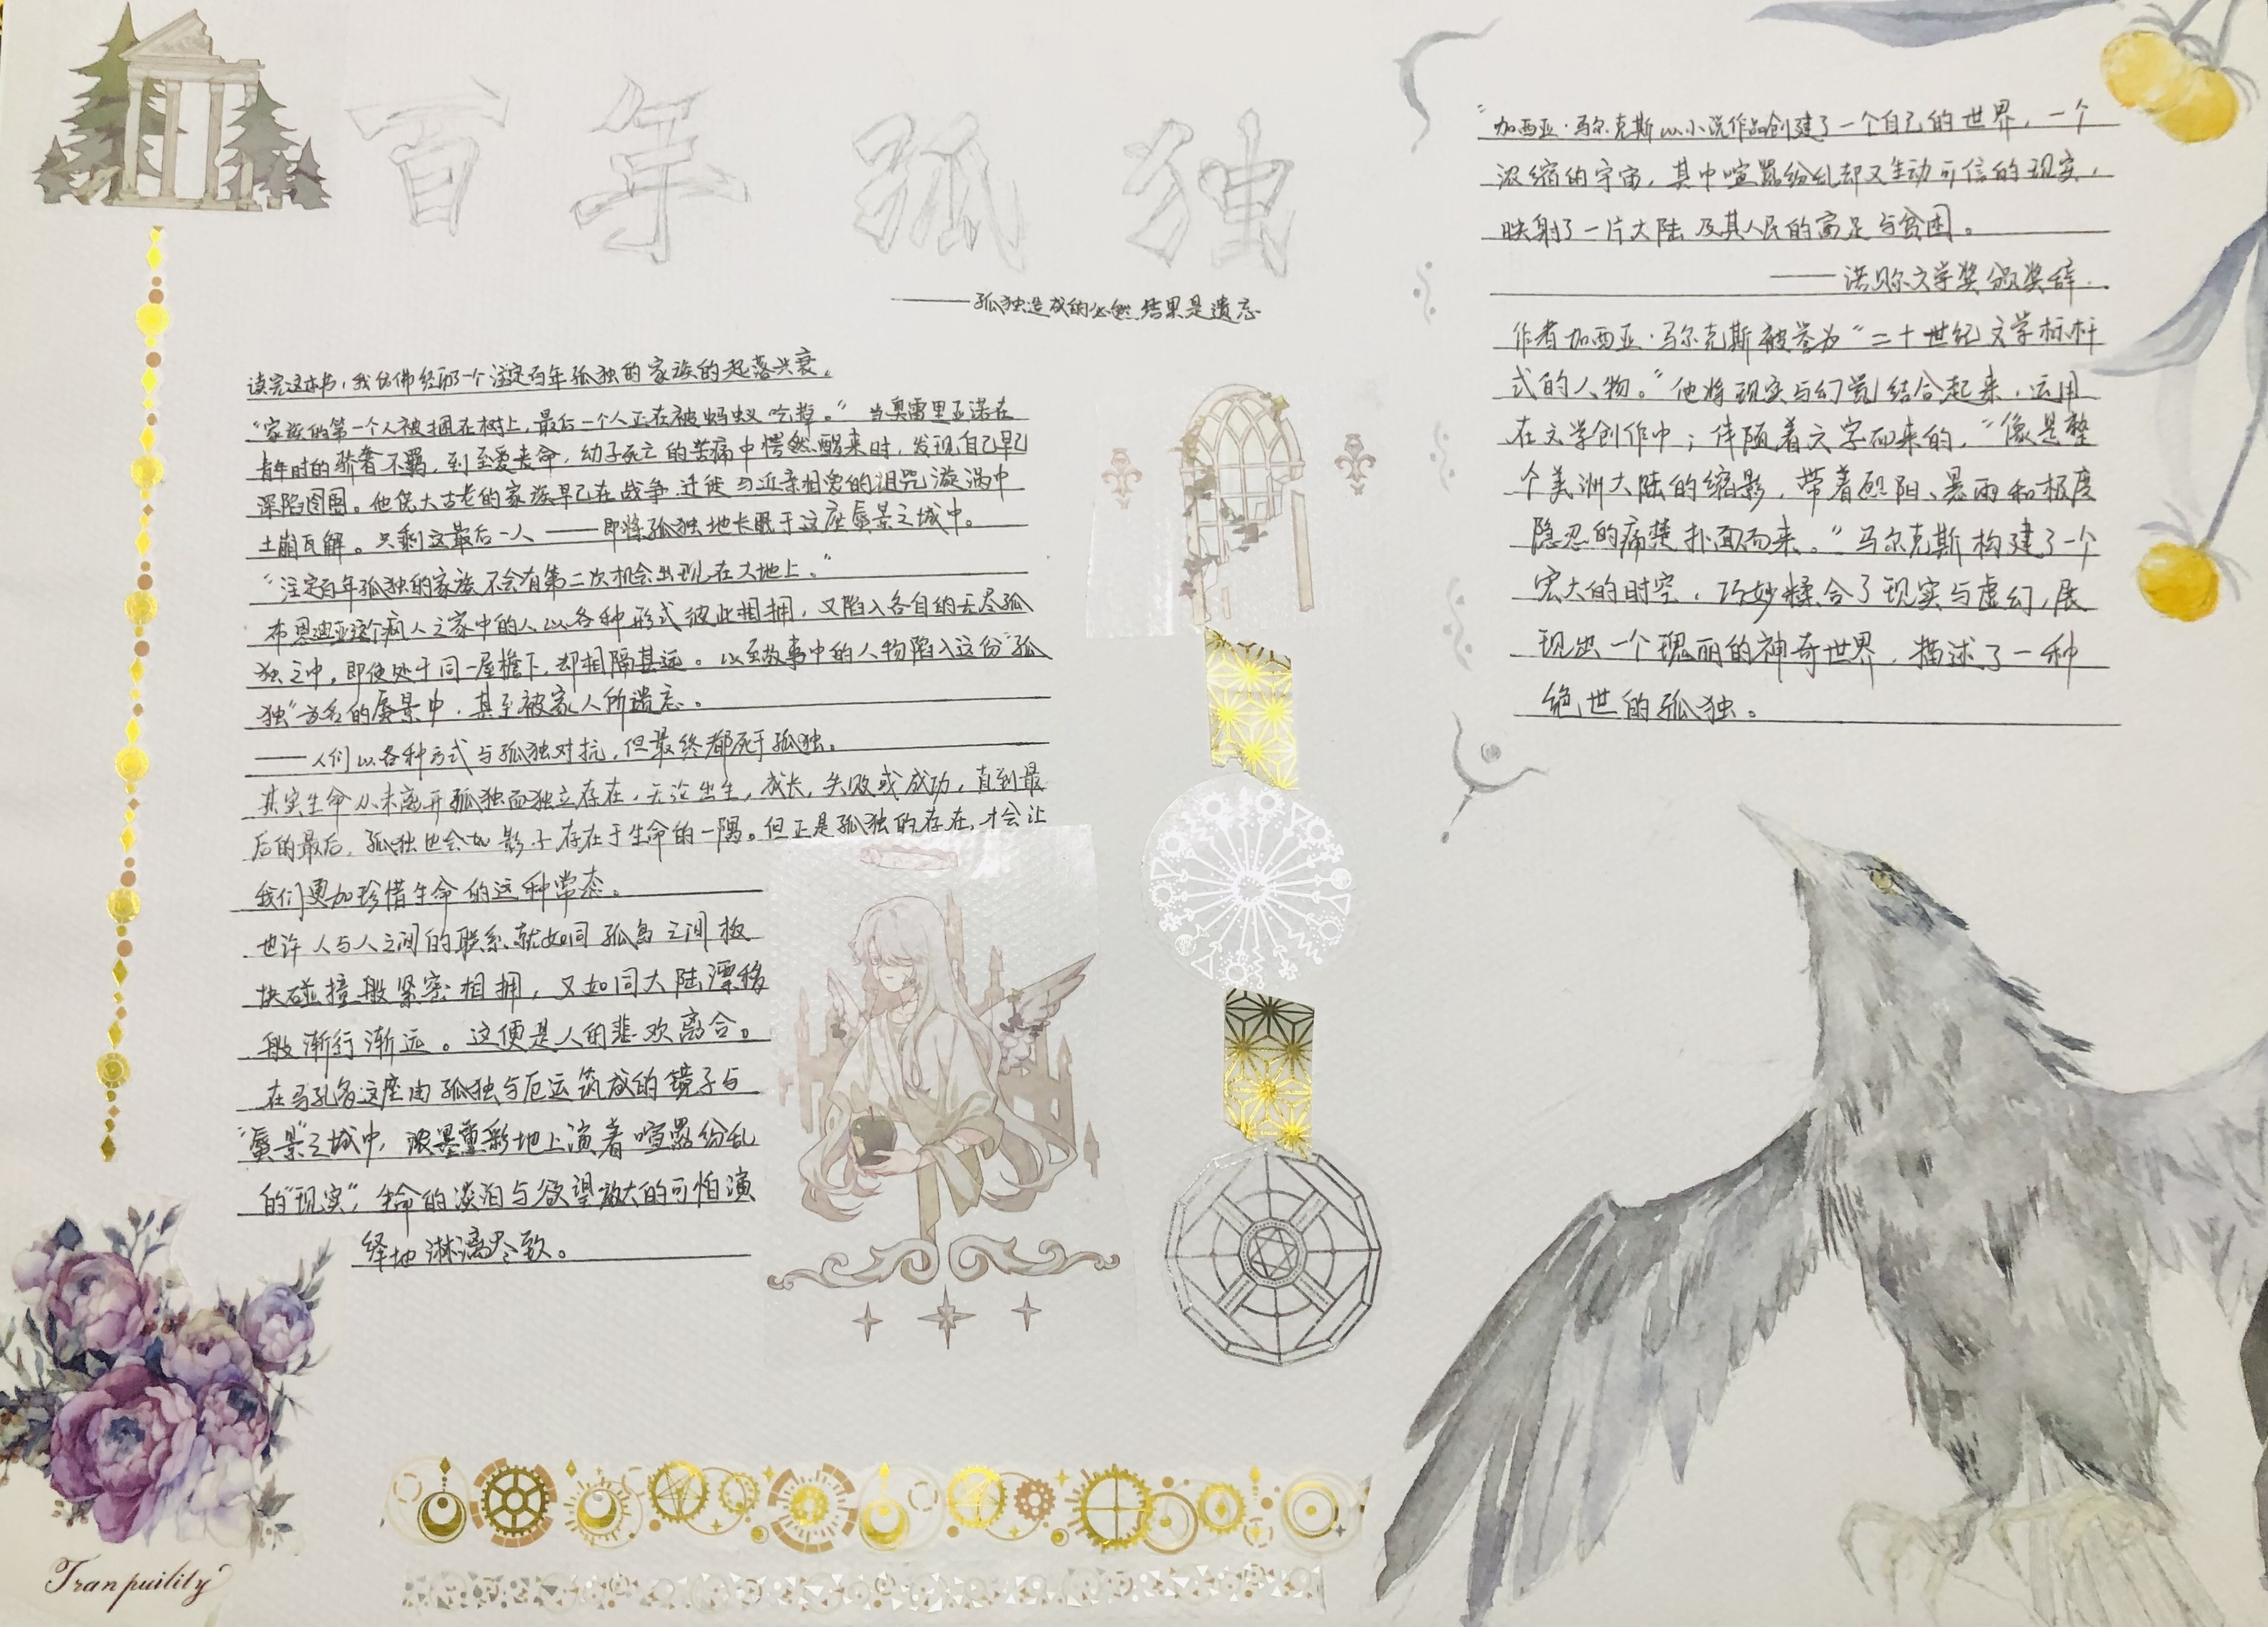 百年孤独
——孤独造成的必然结果是遗忘
读完这本书，我仿佛经历了一个注定百年孤独的家族的起落兴衰。
“家族的第一个人被捆在树上，最后一个人正在被蚂蚁吃掉。”当奥雷里亚诺在
青年时的骄奢不羁，到至爱丧命，幼子死亡的苦痛中愕然醒来时，发现自己早已
深陷囹圄。他庞大古老的家族早已在战争、迁徙与近亲相爱的诅咒漩涡中
土崩瓦解。只剩这最后一人——即将孤独地长眠于这座蜃景之城中。
“注定百年孤独的家族不会有第二次机会出现在大地上。”
布恩迪亚这个疯人之家中的人以各种形式彼此相拥，又陷入各自的无尽孤
独之中，即使处于同一屋檐下，却相隔甚远。以至故事中的人物陷入这份“孤
独”为名的蜃景中，甚至被家人所遗忘。
——人们以各种方式与孤独对抗，但最终都死于孤独。
其实生命从未离开孤独而独立存在，无论出生，成长，失败或成功，直到最
后的最后，孤独也会如影子存在于生命的一隅。但正是孤独的存在，才会让
我们更加珍惜生命的这种常态。
也许人与人之间的联系就如同孤岛之间板
块碰撞般紧密相拥，又如同大陆漂移
般渐行渐远。这便是人的悲欢离合。
在马孔多这座由孤独与厄运筑成的镜子与
“蜃景”之城中，浓墨重彩地上演着喧嚣纷乱
的“现实”，生命的淡泊与欲望放大的可怕演
绎地淋漓尽致。
Tranpuility
“加西亚·马尔克斯以小说作品创建了一个自己的世界，一个
浓缩的宇宙，其中喧嚣纷乱却又生动可信的现实，
映射了一片大陆及其人民的富足与贫困。
——诺贝尔文学奖颁奖辞.
作者加西亚·马尔克斯被誉为“二十世纪文学标杆
式的人物。”他将现实与幻觉结合起来，运用
在文学创作中；伴随着文字而来的，“像是整
个美洲大陆的缩影，带着炽阳、暴雨和极度
隐忍的痛楚扑面而来。”马尔克斯构建了一个
宏大的时空，巧妙糅合了现实与虚幻，展
现出一个瑰丽的神奇世界，描述了一种
绝世的孤独。